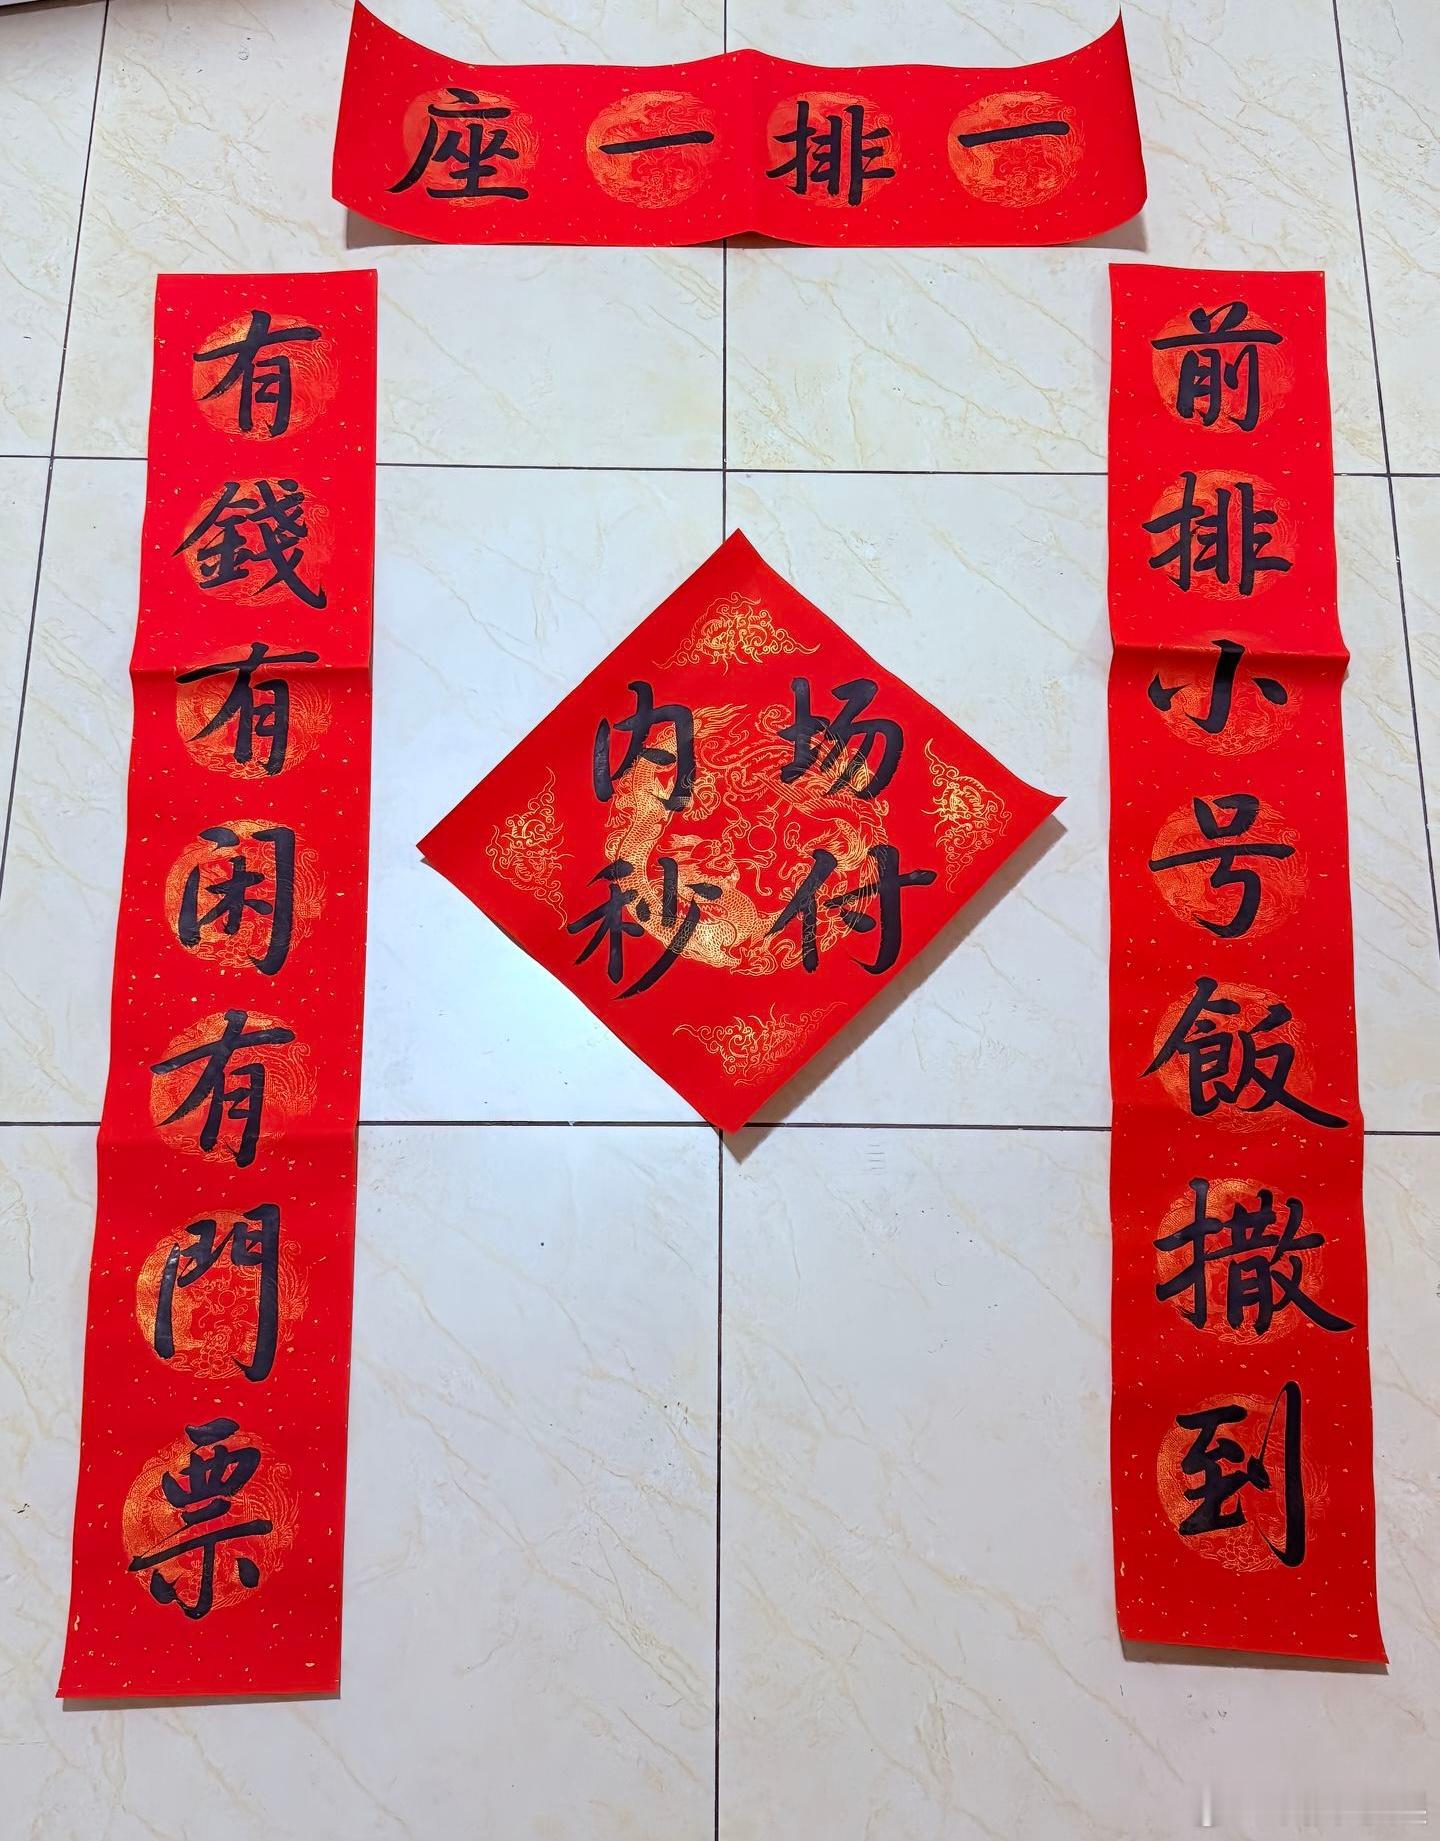 一排一座
前排小号飯撒到
有錢有闲有門票
内场
秒付